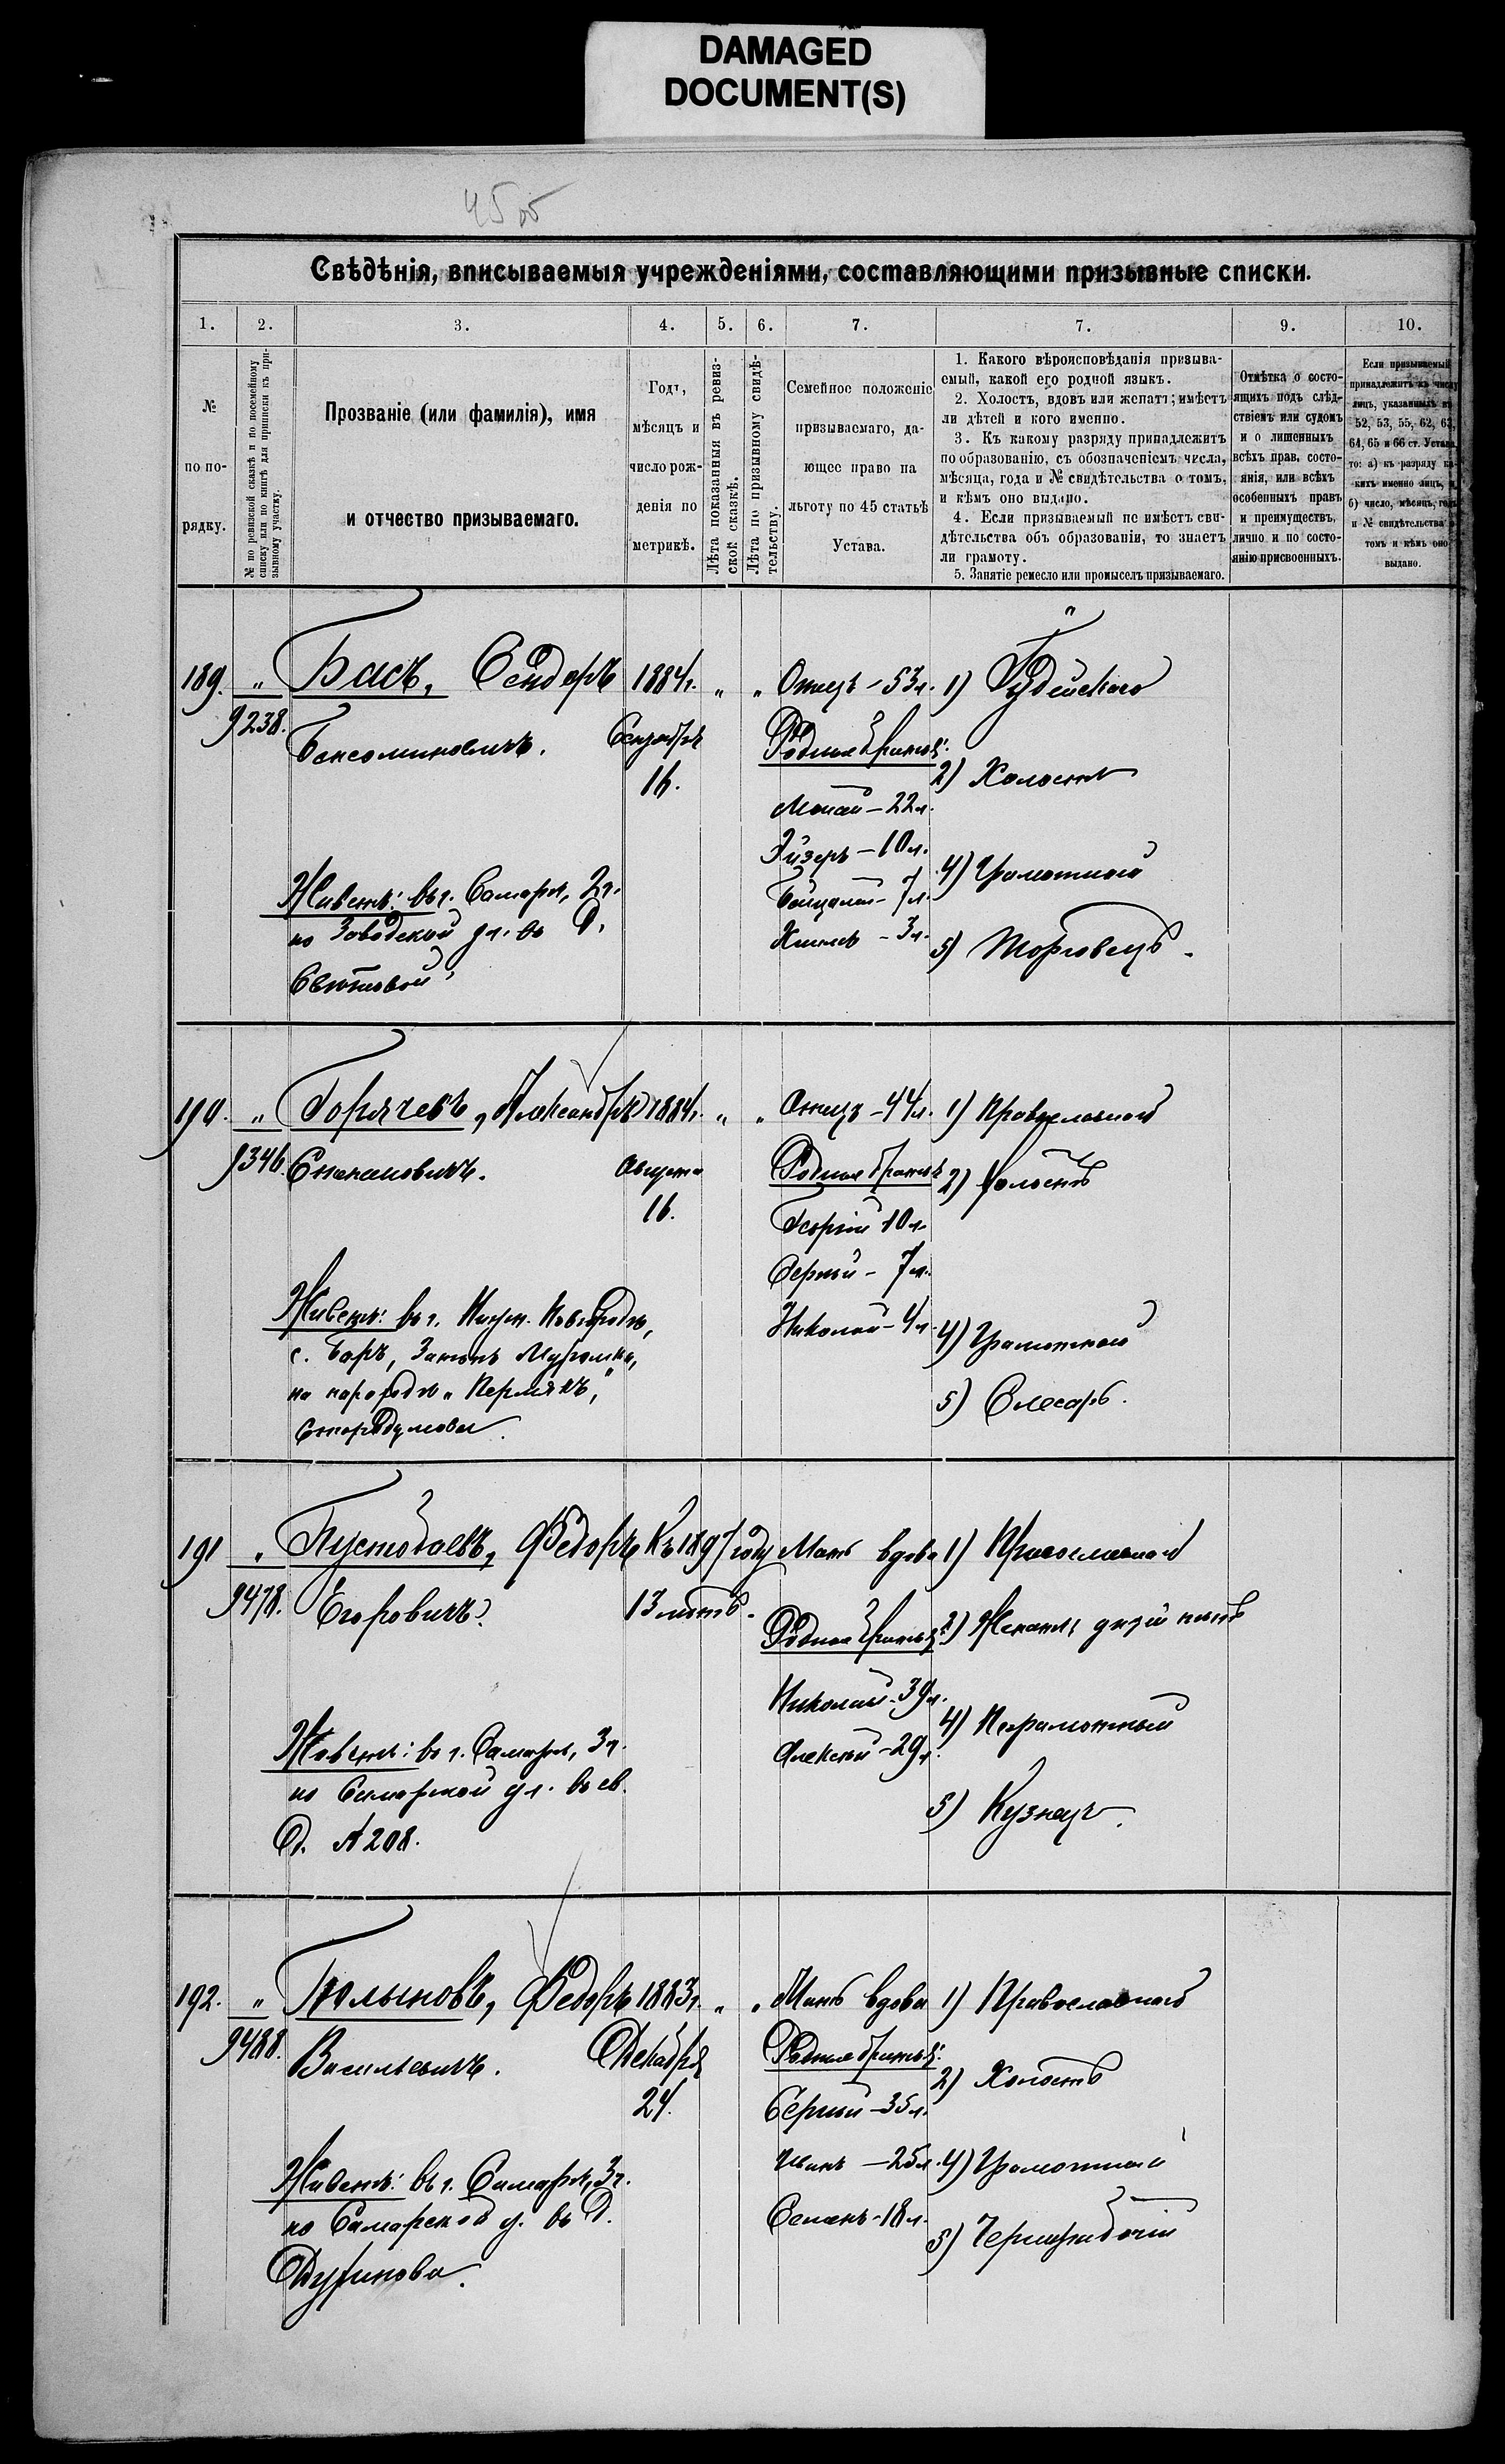 DAMAGED
DOCUMENT(S)
Свѣдѣнія, вписываемыя учрежденіями, составляющими призывные списки.
1. 2. 3. 4. 5. 6. 7. 7. 9. 10.
№
по по-
рядку.
№ по ревизской сказкѣ и по посемейному
списку или по книгѣ для приписки къ при-
зывному участку.
Прозваніе (или фамилія), имя
и отчество призываемаго.
Годъ,
мѣсяцъ и
число рож-
денія по
метрикѣ.
Лѣта показанныя въ ревиз-
ской сказкѣ.
Лѣта по призывному свидѣ-
тельству.
Семейное положеніе
призываемаго, да-
ющее право на
льготу по 45 статьѣ
Устава.
1. Какого вѣроисповѣданія призыва-
емый, какой его родной языкъ.
2. Холостъ, вдовъ или женатъ; имѣетъ
ли дѣтей и кого именно.
3. Къ какому разряду принадлежитъ
по образованію, съ обозначеніемъ числа,
мѣсяца, года и № свидѣтельства о томъ,
и кѣмъ оно выдано.
4. Если призываемый не имѣетъ сви-
дѣтельства объ образованіи, то знаетъ
ли грамоту.
5. Занятіе ремесло или промыселъ призываемаго.
Отмѣтка о состо-
ящихъ подъ слѣд-
ствіемъ или судомъ
и о лишенныхъ
всѣхъ прав, состо-
янія, или всѣхъ
особенныхъ правъ
и преимуществъ,
лично и по состо-
янію присвоенныхъ.
Если призываемый
принадлежитъ къ числу
лицъ, указанныхъ въ
52, 53, 55, 62, 63,
64, 65 и 66 ст. Устава
то: а) къ разряду ка-
кихъ именно лицъ, и
б) число, мѣсяцъ, годъ
и № свидѣтельства о
томъ и кѣмъ оно
выдано.
189. " Басъ, Сендеръ 1884г. " " Отецъ - 53л. 1) Іудейскаго
9238. Бенсоминовичъ. Сентября Родные братья:
16. 2) Холостъ
22л.
10л.
4) Грамотный
7л.
Живетъ: въ г. Самарѣ, 2ч.
по Заводской ул. въ д. 3л. 5) Торговецъ.
190. " Горячевъ, Александръ 1884г. " " Отецъ - 44л. 1) Православнаго
9346. Степановичъ. Августа Родные братья 2) Холостъ
16. Георгій 10л.
Сергѣй - 7л.
Живетъ: въ г. Нижн. Новгородѣ, Николай - 4л. 4) Грамотный
с. Боръ, Затонъ
на пароходѣ "Пермякъ," 5) Слесарь.
191 " Пустобаевъ, Федоръ Къ 1897 году Мать вдова 1) Православнаго
9478. Егоровичъ. 13 лѣтъ. Родные братья: 2) Женатъ дѣтей нѣтъ
Николай - 39л. 4) Неграмотный
Живетъ: въ г. Самарѣ, 3ч. Алексѣй - 29л.
по Самарской ул. въ св. 5) Кузнецъ.
д. № 208.
192. " Полыновъ, Федоръ 1883г. " " Мать вдова 1) Православнаго
9488. Васильевичъ. Декабря Родные братья: 2) Холостъ
24. Сергѣй - 35л.
Живетъ: въ г. Самарѣ, 3ч. Иванъ - 25л. 4) Грамотный
по Самарской у. въ д. Семенъ - 18л. 5) Чернорабочій